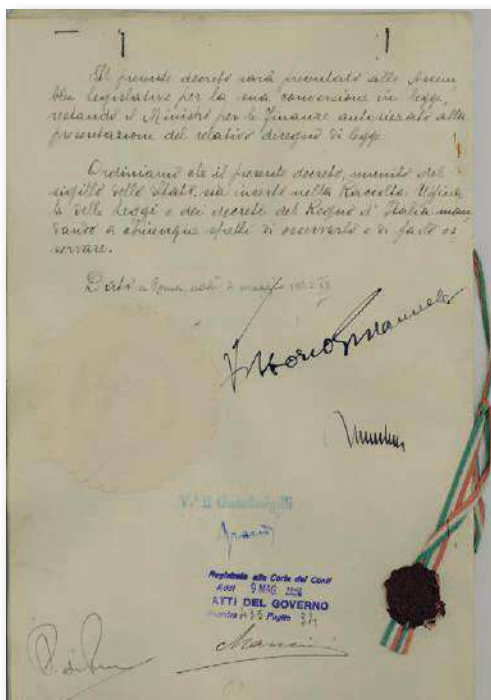 Il presente decreto sarà presentato alle Assem
blee legislative per la sua conversione in legge,
restando il Ministro per le Finanze autorizzato alla
presentazione del relativo disegno di legge.
Ordiniamo che il presente decreto, munito del
sigillo dello Stato, sia inserto nella Raccolta Ufficia
le delle leggi e dei decreti del Regno d'Italia man
dando a chiunque spetti di osservarlo e di farlo os
servare.
Dato a Roma, addì
Vittorio Emanuele
V.° il Guardasigilli
Registrato alla Corte dei Conti
Addì 9 MAG.
ATTI DEL GOVERNO
Registro Foglio
Mancini